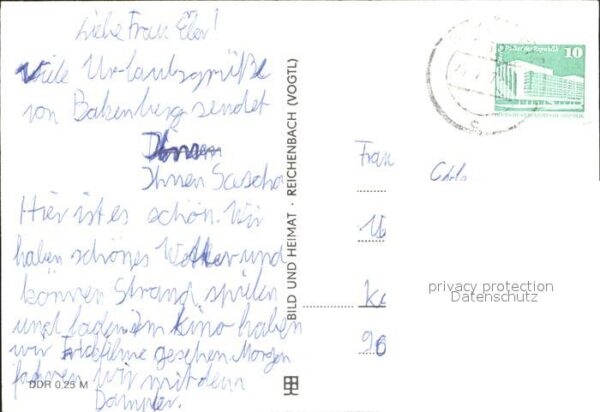 Liebe Frau Eler!
Viele Urlaubsgrüße
von Bakenberg sendet
Ihnen
Ihnen Sascha
Hier ist es schön. Wir
haben schönes Wetter und
können Strand spielen
und baden. Im Kino haben
wir Trickfilme gesehen. Morgen
fahren wir mit dem
Dampfer.
DDR 0,25 M
BILD UND HEIMAT · REICHENBACH (VOGTL)
Palast der Republik 10
Frau
privacy protection
Datenschutz
96